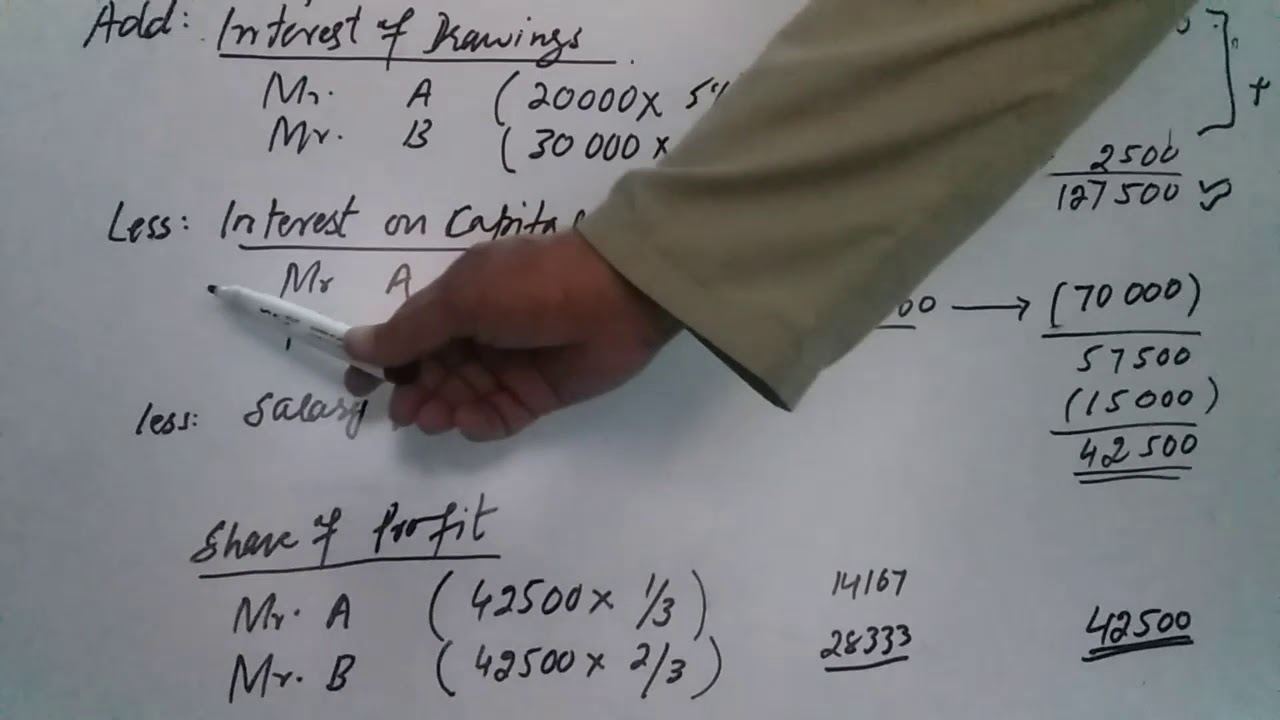 Add: Interest of Drawings
Mr. A (20000 x 5%
Mr. B (30 000 x
2500
127500
Less: Interest on Capita
Mr A
00 → (70 000)
57500
less: Salary (15000)
42500
Share of Profit
Mr. A (42500 x 1/3) 14167
Mr. B (42500 x 2/3) 28333 42500
+